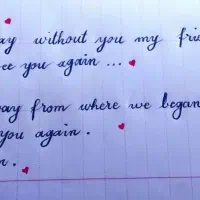 ay without you my frie
ee you again ...
way from where we began
you again .
n .